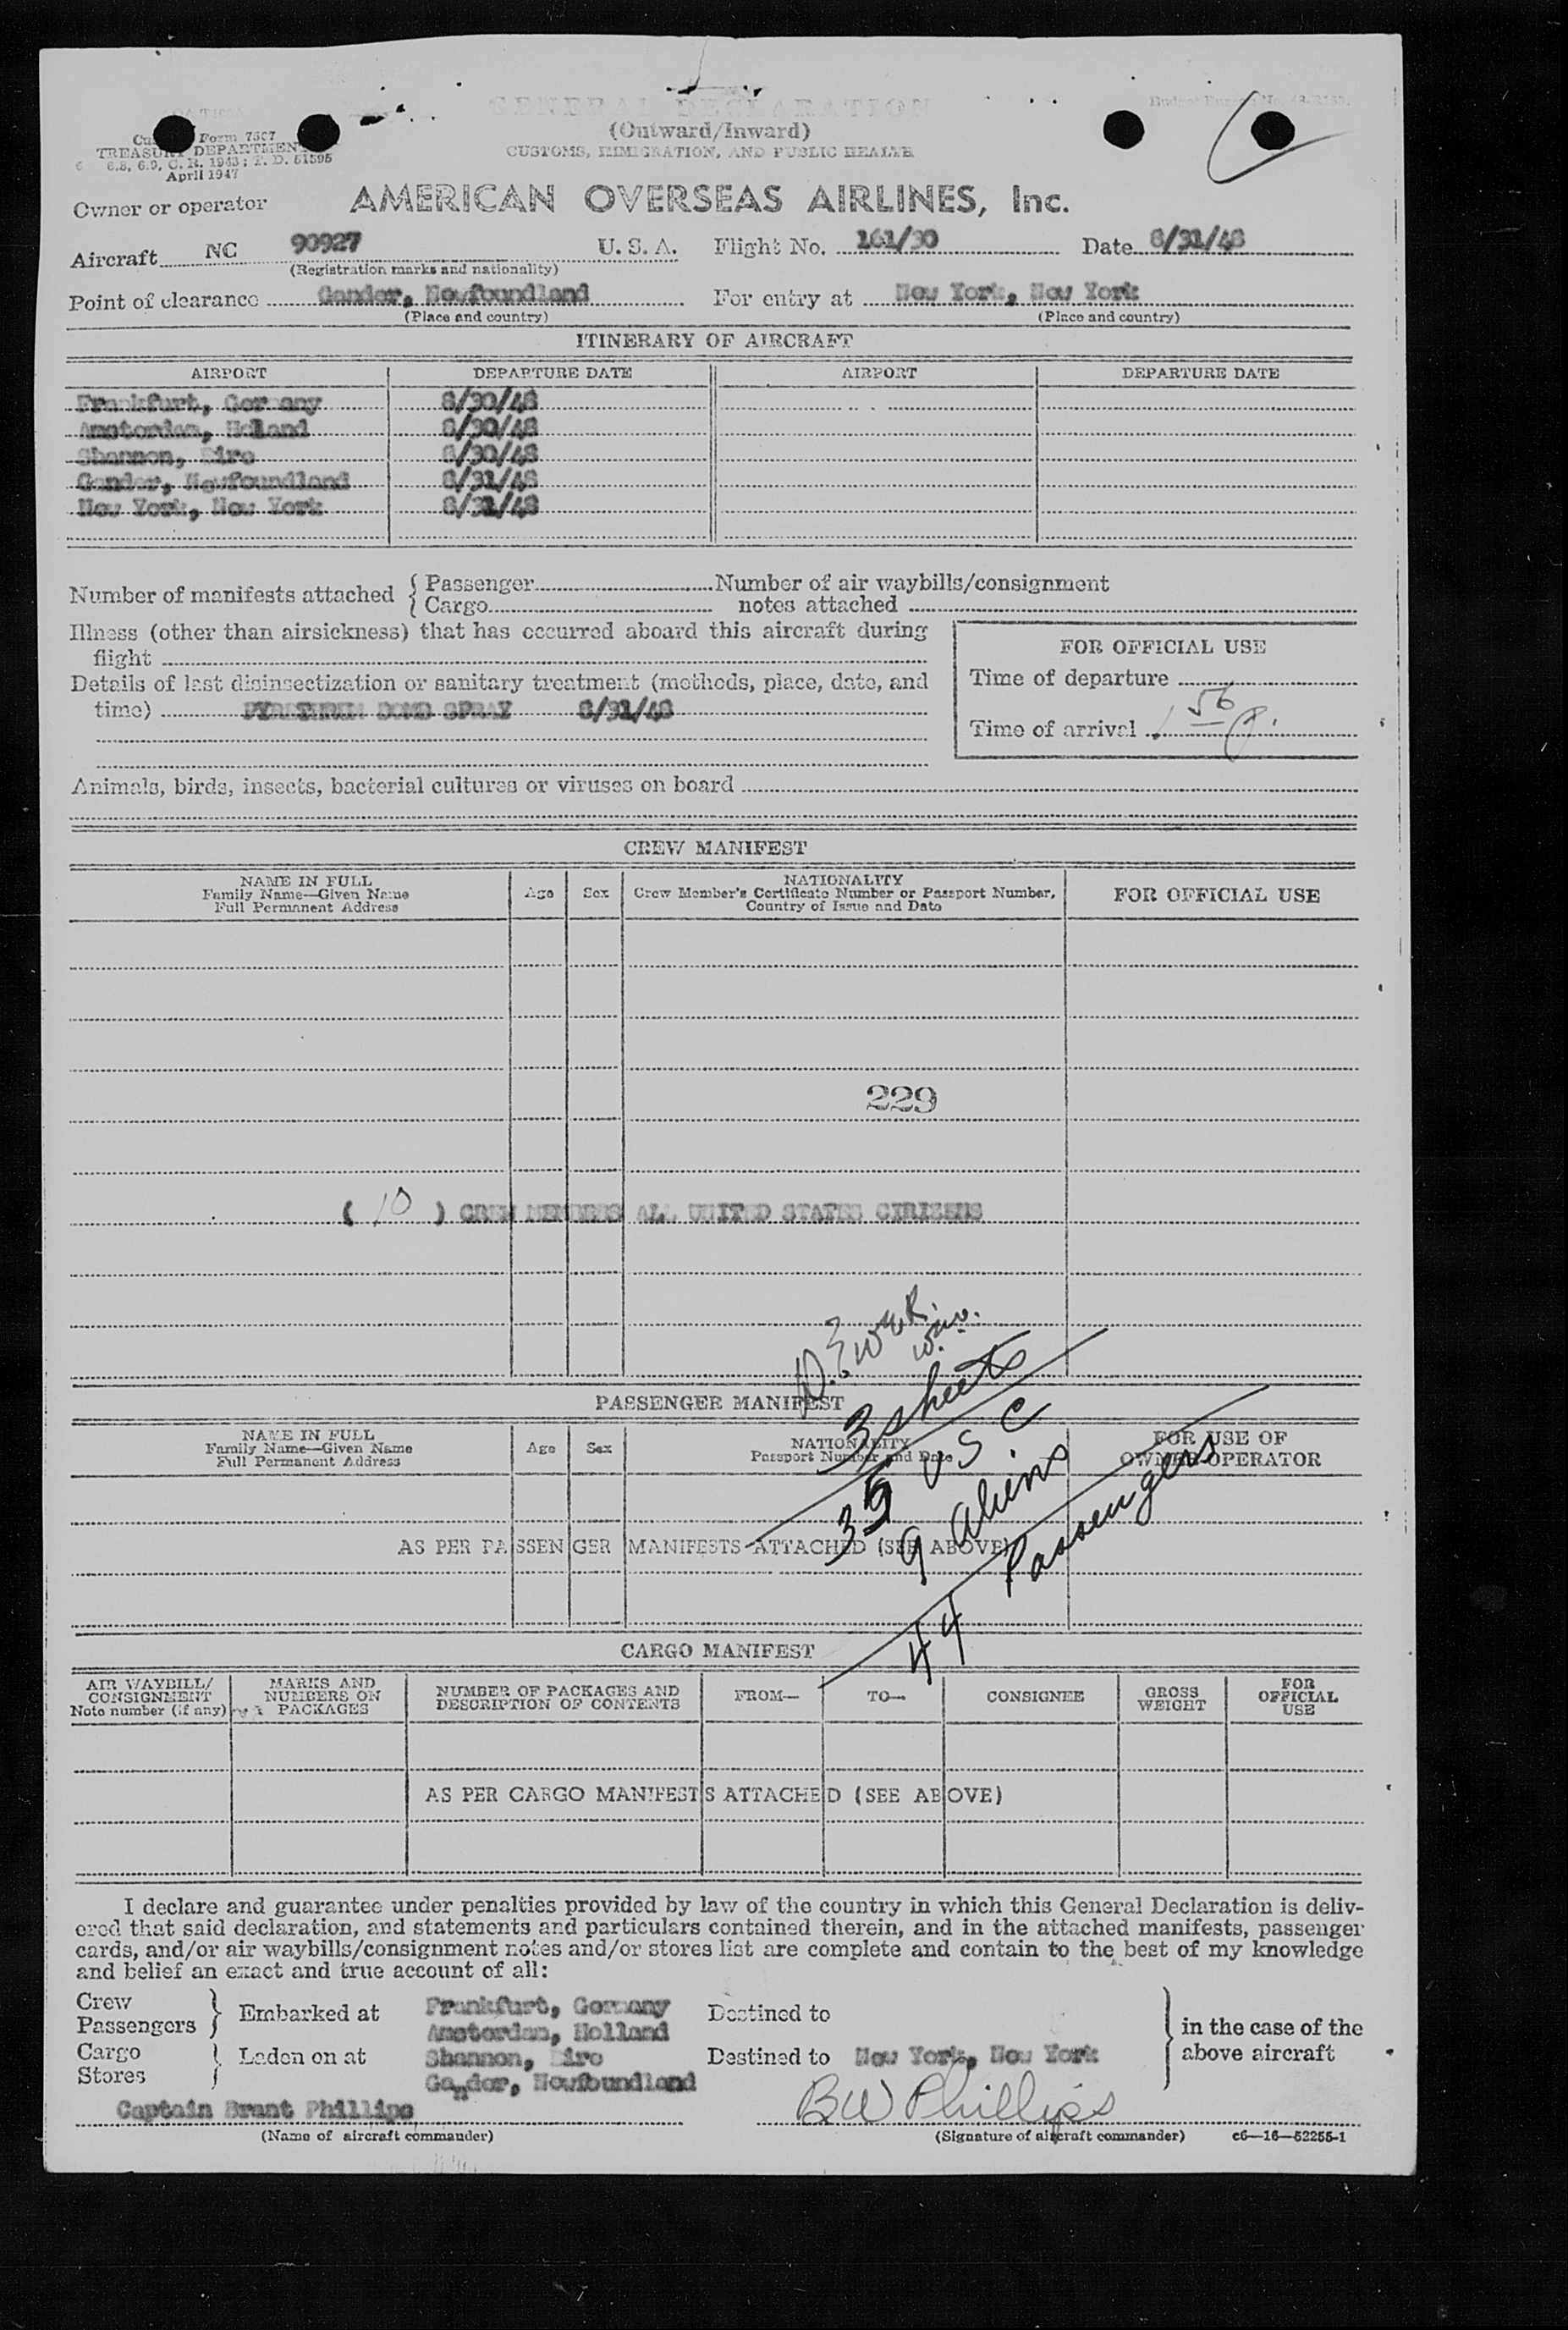 GENERAL DECLARATION
(Outward/Inward)
CUSTOMS, IMMIGRATION, AND PUBLIC HEALTH
Form 7507
TREASURY DEPARTMENT
6.8, 6.9, C. R. 1943; T. D. 51595
April 1947
Owner or operator AMERICAN OVERSEAS AIRLINES, Inc.
Aircraft NC 90927 U. S. A. Flight No. 161/30 Date 8/31/48
(Registration marks and nationality)
Point of clearance Gander, Newfoundland For entry at New York, New York
(Place and country) (Place and country)
ITINERARY OF AIRCRAFT
AIRPORT DEPARTURE DATE AIRPORT DEPARTURE DATE
Frankfurt, Germany 8/30/48
Amsterdam, Holand 8/30/48
Shannon, Eire 8/30/48
Gander, Newfoundland 8/31/48
New York, New York 8/31/48
Number of manifests attached { Passenger Number of air waybills/consignment
{ Cargo notes attached
Illness (other than airsickness) that has occurred aboard this aircraft during
flight
Details of last disinsectization or sanitary treatment (methods, place, date, and
time) BOMB SPRAY 8/31/48
FOR OFFICIAL USE
Time of departure
Time of arrival 1 56 p.
Animals, birds, insects, bacterial cultures or viruses on board
CREW MANIFEST
NAME IN FULL
Family Name—Given Name
Full Permanent Address
Age Sex
NATIONALITY
Crew Member's Certificate Number or Passport Number,
Country of Issue and Date
FOR OFFICIAL USE
229
( 10 ) CREW MEMBERS ALL UNITED STATES CITIZENS
3 sheets
35 USC
9 aliens
44 Passengers
PASSENGER MANIFEST
NAME IN FULL
Family Name—Given Name
Full Permanent Address
Age Sex
NATIONALITY
Passport Number and Date
FOR USE OF
OWNER OPERATOR
AS PER PASSENGER MANIFESTS ATTACHED (SEE ABOVE)
CARGO MANIFEST
AIR WAYBILL/
CONSIGNMENT
Note number (if any)
MARKS AND
NUMBERS ON
PACKAGES
NUMBER OF PACKAGES AND
DESCRIPTION OF CONTENTS
FROM— TO— CONSIGNEE
GROSS
WEIGHT
FOR
OFFICIAL
USE
AS PER CARGO MANIFESTS ATTACHED (SEE ABOVE)
I declare and guarantee under penalties provided by law of the country in which this General Declaration is deliv-
ered that said declaration, and statements and particulars contained therein, and in the attached manifests, passenger
cards, and/or air waybills/consignment notes and/or stores list are complete and contain to the best of my knowledge
and belief an exact and true account of all:
Crew
Passengers } Embarked at Frankfurt, Germany Destined to
Amsterdam, Holland
Cargo
Stores } Laden on at Shannon, Eire Destined to New York, New York
Gander, Newfoundland
in the case of the
above aircraft
Captain Brant Phillips B W Phillips
(Name of aircraft commander) (Signature of aircraft commander) c6—16—52255-1